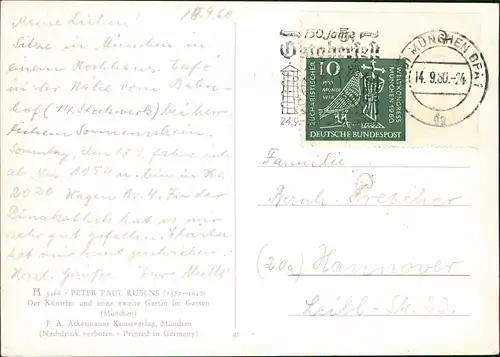 14.9.60
Meine Lieben!
Sitze in München in
einem Hochhaus. Café
in der Nähe vom Bahn-
hof (14. Stockwerk) bei herr-
lichem Sonnenschein.
Sonntag, den 18.9. fahre ich
ab Mü 1154 u. bin in Ha
2020 Wagen Nr. 4. In der
Pinakothek hat es mir
sehr gut gefallen.
hat mir heut geschrieben.
Herzl. Grüße. Eure Mutti
M 5186 · PETER PAUL RUBENS (1577–1640)
Der Künstler und seine zweite Gattin im Garten
(München)
F. A. Ackermanns Kunstverlag, München
(Nachdruck verboten - Printed in Germany)
150 Jahre
Oktoberfest
24.9.
MÜNCHEN BPA
14. 9.60.-24
10
EUCHARISTISCHER
WELTKONGRESS
MÜNCHEN 1960
PRO MUNDI VITA
DEUTSCHE BUNDESPOST
Familie
Bernh. Prescher
(20a) Hannover
Leibl-Str.